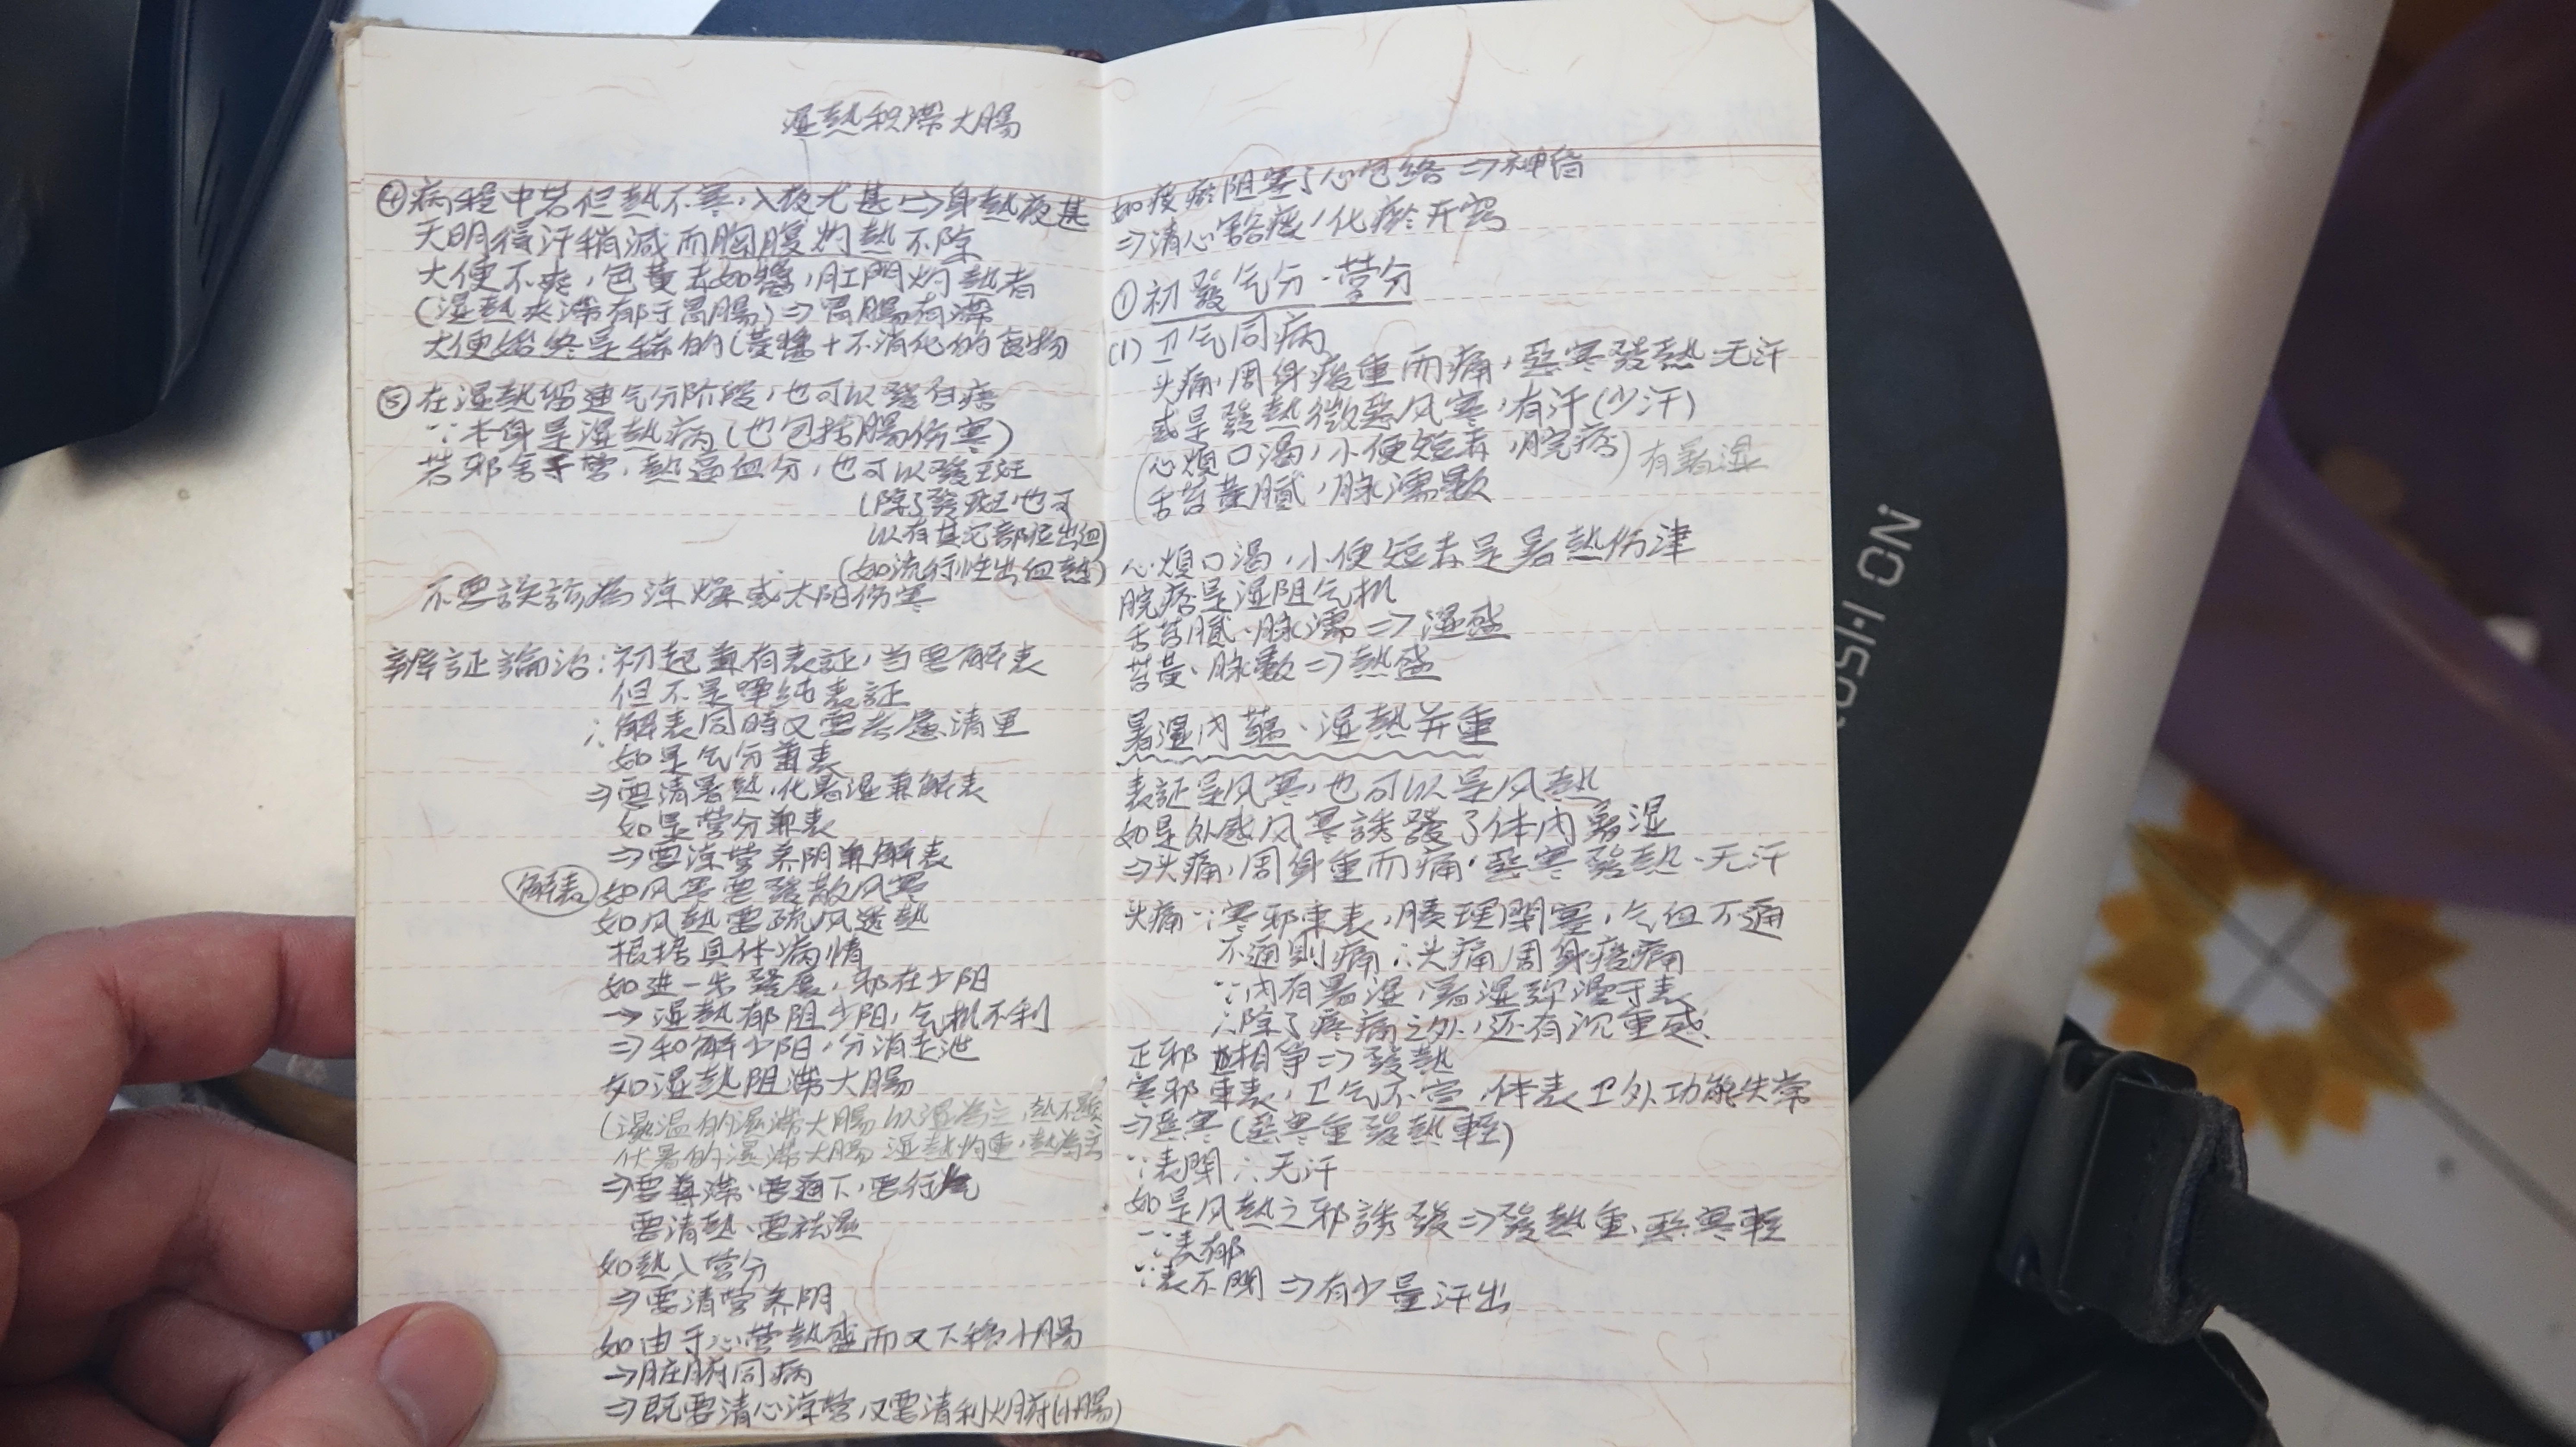 湿熱积滞大腸
④病程中若但熱不寒,入夜尤甚⇒身熱夜甚
天明得汗稍減而胸腹灼熱不除
大便不爽,色黄赤如醬,肛門灼熱者
(湿熱夹滞郁于胃腸)⇒胃腸有滞
大便始终是稀的(黄醬+不消化的食物
⑤在湿熱留連气分阶段,也可以發白㾦
∵本身是湿熱病(也包括腸伤寒)
若邪舍于营,熱逼血分,也可以發斑
(除了發斑也可
以有其它部位出血)
(如流行性出血熱)
不要誤診為凉燥或太阳伤寒
辨証論治:初起兼有表証,当要解表
但不是單純表証
∴解表同時又要考慮清里
如是气分兼表
⇒要清暑熱,化暑湿兼解表
如是营分兼表
⇒要凉营养阴兼解表
解表 如风寒要發散风寒
如风熱要疏风透熱
根据具体病情
如進一步發展,邪在少阳
→湿熱郁阻少阳,气机不利
⇒和解少阳,分消走泄
如湿熱阻滞大腸
(湿温的湿滞大腸以湿為主,熱不顯
伏暑的湿滞大腸湿熱灼重,熱為主
⇒要導滞、要通下,要行气
要清熱、要祛湿
如熱入营分
⇒要清营养阴
如由于心营熱盛而又下移小腸
→脏腑同病
⇒既要清心凉营,又要清利火腑(小腸)
如痰瘀阻塞了心包络⇒神昏
⇒清心豁痰,化瘀开窍
①初發气分·营分
(1)卫气同病
头痛,周身痠重而痛,惡寒發熱、无汗
或是發熱微惡风寒,有汗(少汗)
(心煩口渴,小便短赤,脘痞) 有暑湿
舌苔黄膩,脉濡數
心煩口渴,小便短赤是暑熱伤津
脘痞是湿阻气机
舌苔膩、脉濡⇒湿盛
苔黄、脉數⇒熱盛
暑湿内蕴、湿熱并重
表証是风寒,也可以是风熱
如是外感风寒誘發了体内暑湿
⇒头痛,周身重而痛,惡寒發熱、无汗
头痛∵寒邪束表,腠理閉塞,气血不通
不通則痛∴头痛周身痠痛
∵内有暑湿,暑湿弥漫于表
∴除了疼痛之外,还有沉重感
正邪相争⇒發熱
寒邪束表,卫气不宣,体表卫外功能失常
⇒惡寒(惡寒重發熱輕)
∵表閉∴无汗
如是风熱之邪誘發⇒發熱重、惡寒輕
∵表郁
∵表不閉⇒有少量汗出